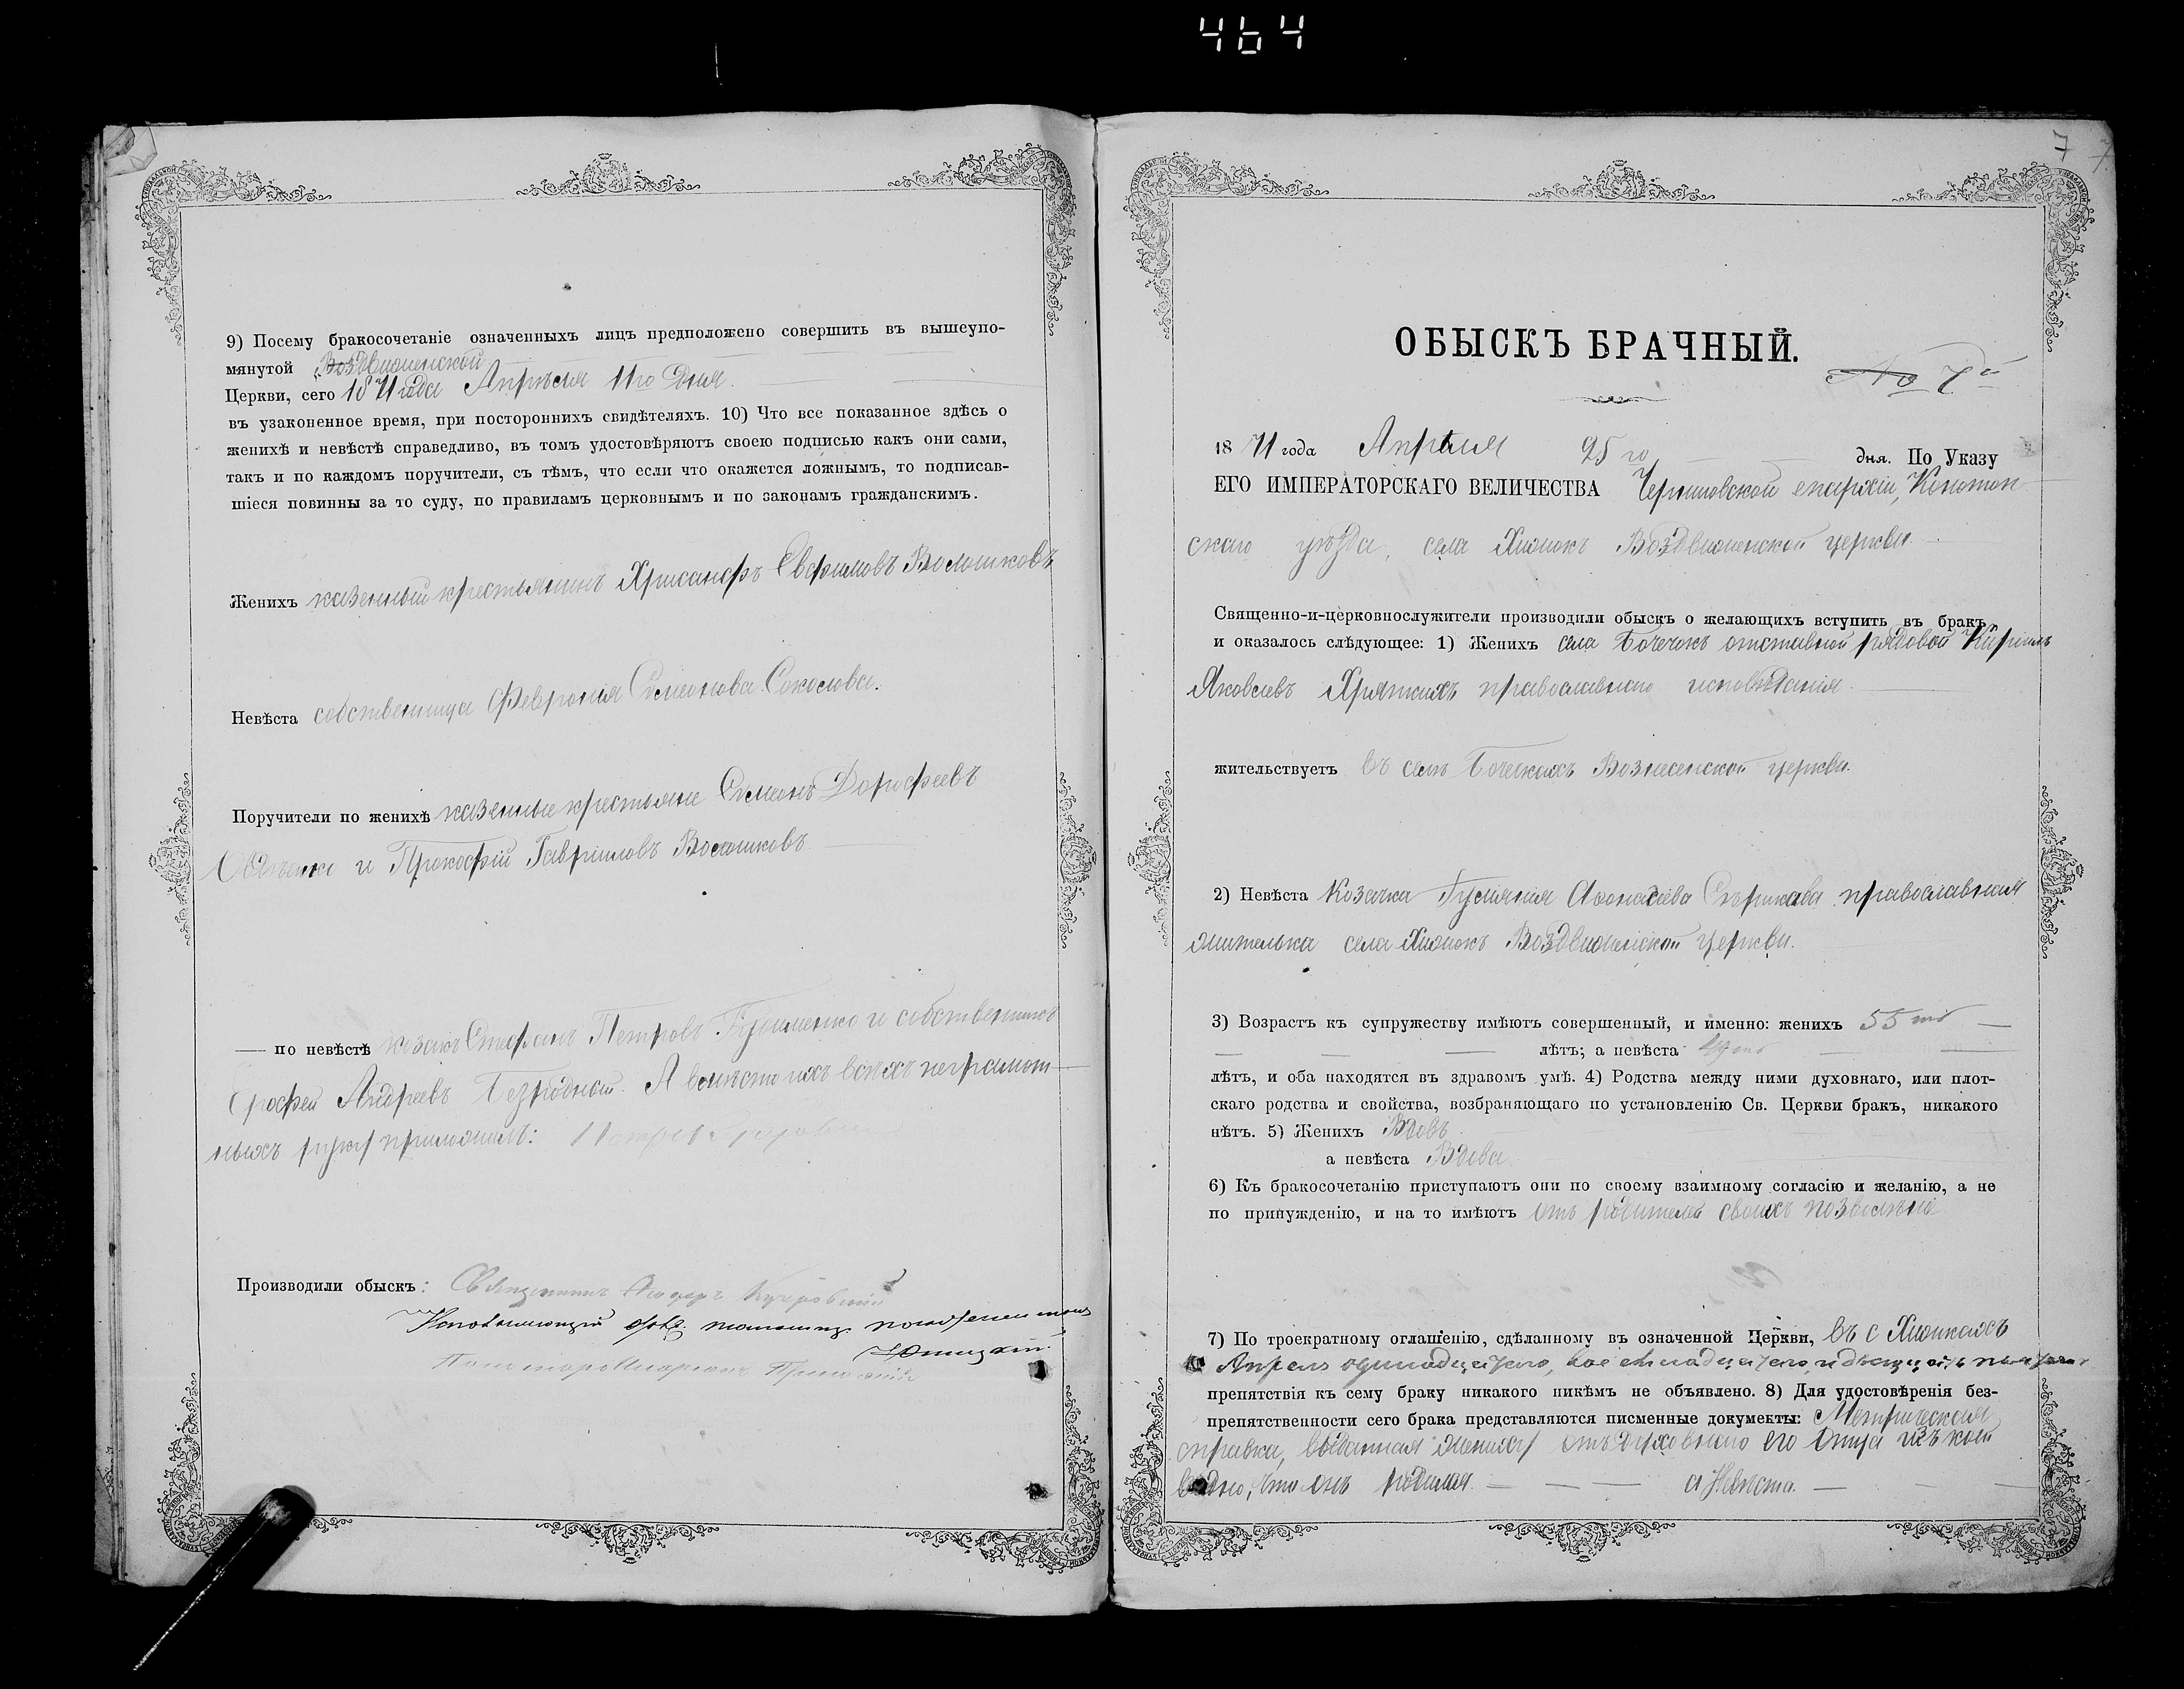 464
9) Посему бракосочетаніе означенныхъ лицъ предположено совершить въ вышеупо-
мянутой Воздвиженской
Церкви, сего 1871 года Апрѣля 11го дня.
въ узаконенное время, при постороннихъ свидѣтеляхъ. 10) Что все показанное здѣсь о
женихѣ и невѣстѣ справедливо, въ томъ удостовѣряютъ своею подписью какъ они сами,
такъ и по каждомъ поручители, съ тѣмъ, что если что окажется ложнымъ, то подписав-
шіеся повинны за то суду, по правиламъ церковнымъ и по законамъ гражданскимъ.
Женихъ казенный крестьянинъ Хрисанфъ Евфимовъ Волошковъ
Невѣста собственница Февронія Симеонова Соколова.
Поручители по женихѣ казенные крестьяне Симеонъ Дорофеевъ
и Прокофій Гавріиловъ Волошковъ
— по невѣстѣ казакъ Стефанъ Петровъ и собственникъ
Ерофей Андреевъ Безродный. А вмѣсто ихъ всѣхъ неграмот-
ныхъ руку приложилъ:
Производили обыскъ: Священникъ
7 7
ОБЫСКЪ БРАЧНЫЙ.
№ 7й
1871 года Апрѣля 25го дня. По Указу
ЕГО ИМПЕРАТОРСКАГО ВЕЛИЧЕСТВА Черниговской епархіи, Конотоп-
скаго уѣзда, села Хижокъ Воздвиженской церкви
Священно-и-церковнослужители производили обыскъ о желающихъ вступить въ бракъ,
и оказалось слѣдующее: 1) Женихъ села Бочечокъ отставной рядовой Кирилъ
Яковлевъ православнаго исповѣданія
жительствуетъ въ селѣ Бочечкахъ Вознесенской церкви.
2) Невѣста Козачка Гуліянія Аѳонасіева православная
жителька села Хижокъ Воздвиженской церкви.
3) Возрастъ къ супружеству имѣютъ совершенный, и именно: женихъ 55ть
лѣтъ; а невѣста
лѣтъ, и оба находятся въ здравомъ умѣ. 4) Родства между ними духовнаго, или плот-
скаго родства и свойства, возбраняющаго по установленію Св. Церкви бракъ, никакого
нѣтъ. 5) Женихъ Вдовъ
а невѣста Вдова
6) Къ бракосочетанію приступаютъ они по своему взаимному согласію и желанію, а не
по принужденію, и на то имѣютъ отъ родителей своихъ позволеніе
7) По троекратному оглашенію, сдѣланному въ означенной Церкви, въ с Хижкахъ
Апреля одинадцатого, восемнадцатого и двадцать пятого
препятствія къ сему браку никакого никѣмъ не объявлено. 8) Для удостовѣренія без-
препятственности сего брака представляются писменные документы: Метрическая
справка, выданная жениху отъ духовнаго его отца изъ коей
видно, что онъ родился. — — — а Невѣста. —